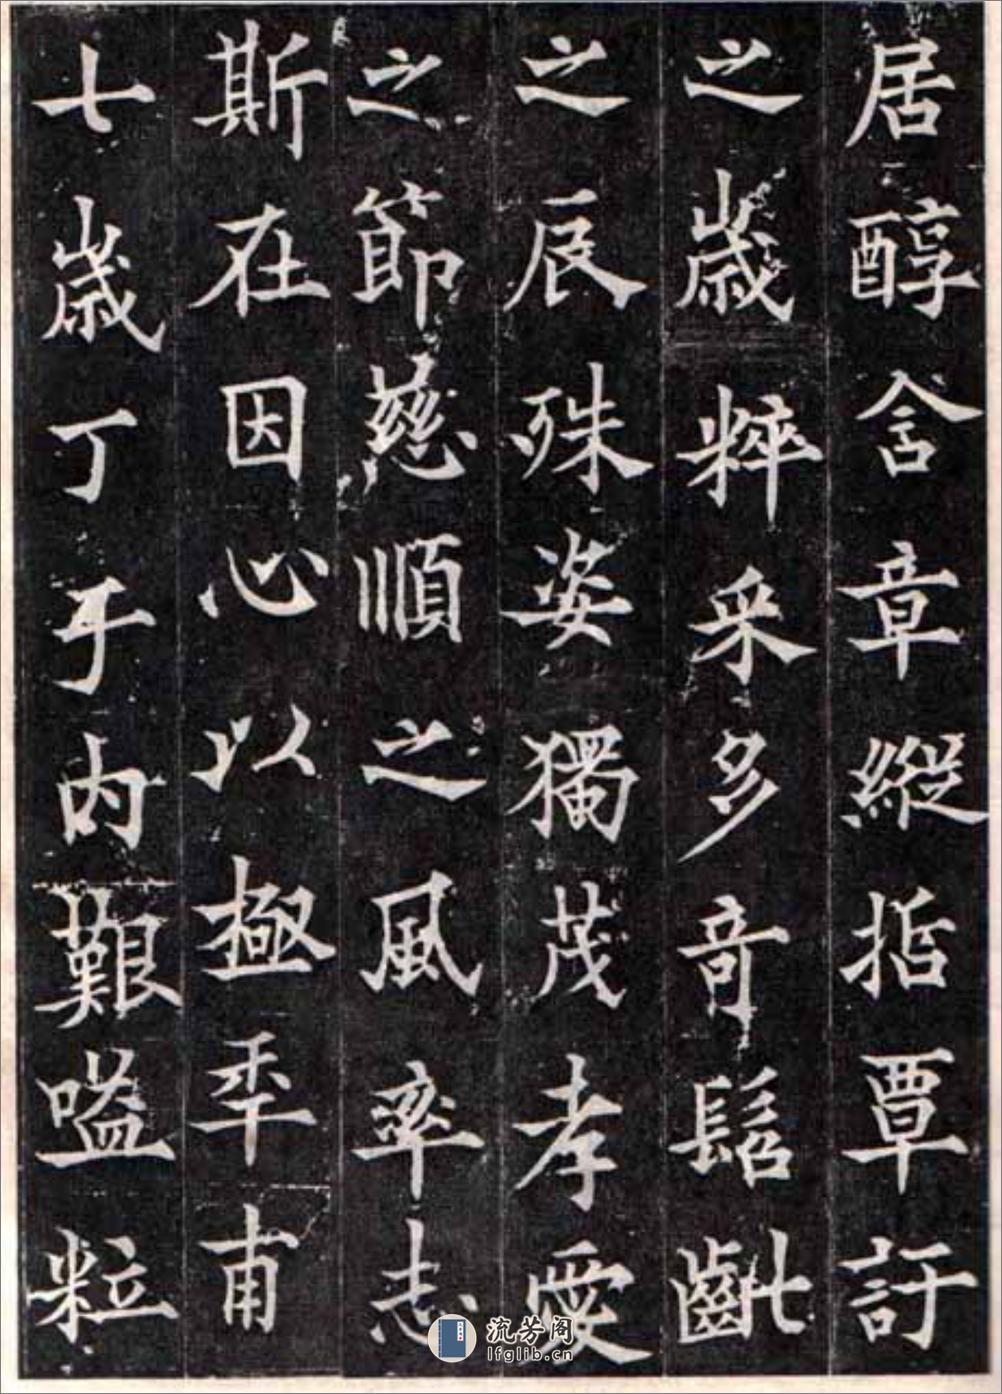 居醇含章縱指覃訏
之歲粹采多奇髫齔
之辰殊姿獨茂孝愛
之節慈順之風率志
斯在因心以極年甫
七歲丁于内艱嗌粒
流芳阁
lfglib.cn